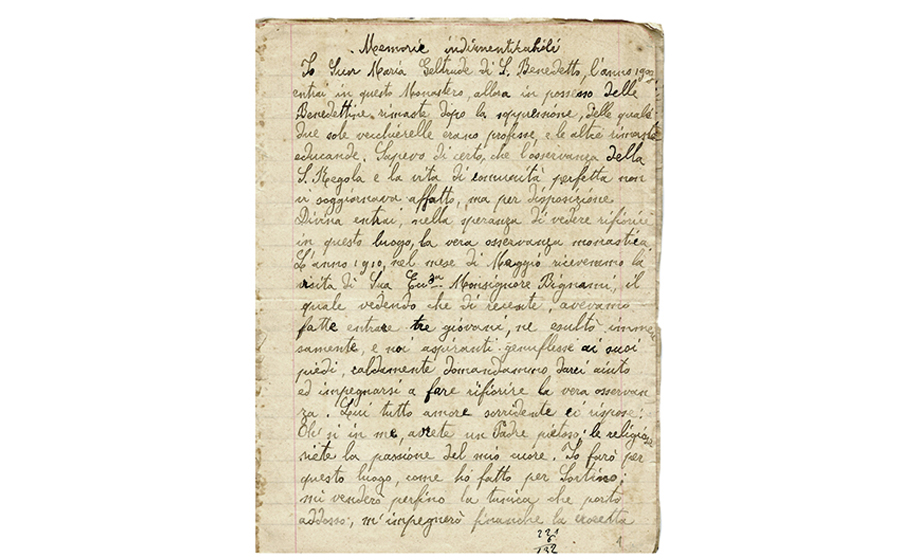 Memorie indimentikabili
Io Suor Maria Geltrude di S. Benedetto, l'anno 1902
entrai in questo Monastero, allora in possesso delle
Benedettine rimaste dopo la soppressione, delle quali
due sole vecchierelle erano professe, e le altre rimaste
educande. Sapevo di certo, che l'osservanza della
S. Regola e la vita di comunità perfetta non
vi soggiornava affatto, ma per disposizione
Divina entrai, nella speranza di vedere rifiorire
in questo luogo, la vera osservanza monastica.
L'anno 1910, nel mese di Maggio ricevemmo la
visita di Sua Monsignore Bignami, il
quale vedendo che di recente, avevamo
fatte entrare tre giovani, ne esultò immen
samente, e noi aspiranti genuflesse ai suoi
piedi, caldamente domandammo darci aiuto
ed impegnarsi a fare rifiorire la vera osservan
za. Lui tutto amore sorridente ci rispose:
Eh! si in me, avrete un Padre pietoso; le religiose
siete la passione del mio cuore. Io farò per
questo luogo, come ho fatto per Sortino;
mi venderò perfino la tunica che porto
addosso, m'impegnerò finanche la crocetta
221
6
132